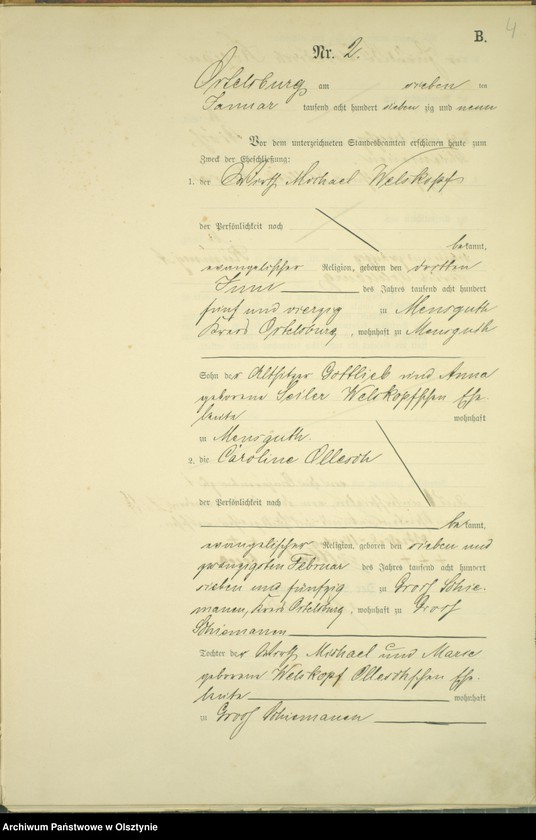 B.
4
Nr. 2.
Ortelsburg am sieben ten
Januar tausend acht hundert sieben zig und neun
Vor dem unterzeichneten Standesbeamten erschienen heute zum
Zweck der Eheschließung:
1. der Wirth Michael Welskopf
der Persönlichkeit nach
bekannt,
evangelischer Religion, geboren den dritten
Juni des Jahres tausend acht hundert
fünf und vierzig zu Mensguth
Kreis Ortelsburg, wohnhaft zu Mensguth
Sohn der Altsitzer Gottlieb und Anna
geborene Seiler Welskopfschen Ehe-
leute wohnhaft
zu Mensguth.
2. die Caroline Ollesch
der Persönlichkeit nach
bekannt,
evangelischer Religion, geboren den sieben und
zwanzigsten Februar des Jahres tausend acht hundert
sieben und fünfzig zu Groß Schie-
manen, Kreis Ortelsburg, wohnhaft zu Groß
Schiemanen
Tochter der Wirth Michael und Marie
geborene Welskopf Olleschschen Ehe-
leute wohnhaft
zu Groß Schiemanen
Archiwum Państwowe w Olsztynie